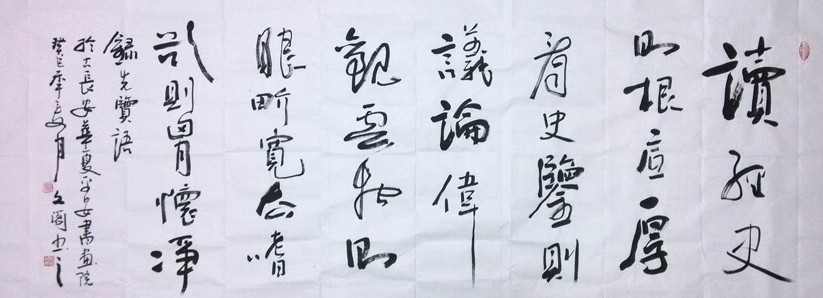 讀經史
則根底厚
看史鑒則
議論偉
觀雲物則
眼界寬去嗜
欲則胸懷淨
錄先賢語
於古長安華夏平安書画院
癸巳年夏月 文書之